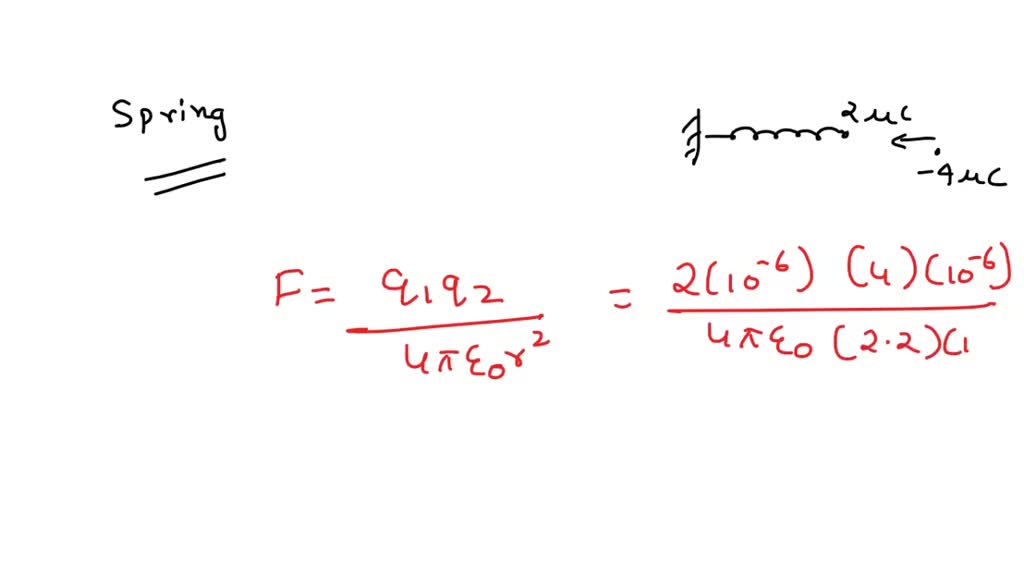 Spring
2μC
-4μC
F = q1q2 / 4πε0r² = 2(10⁻⁶) (4)(10⁻⁶) / 4πε0 (2.2)(1